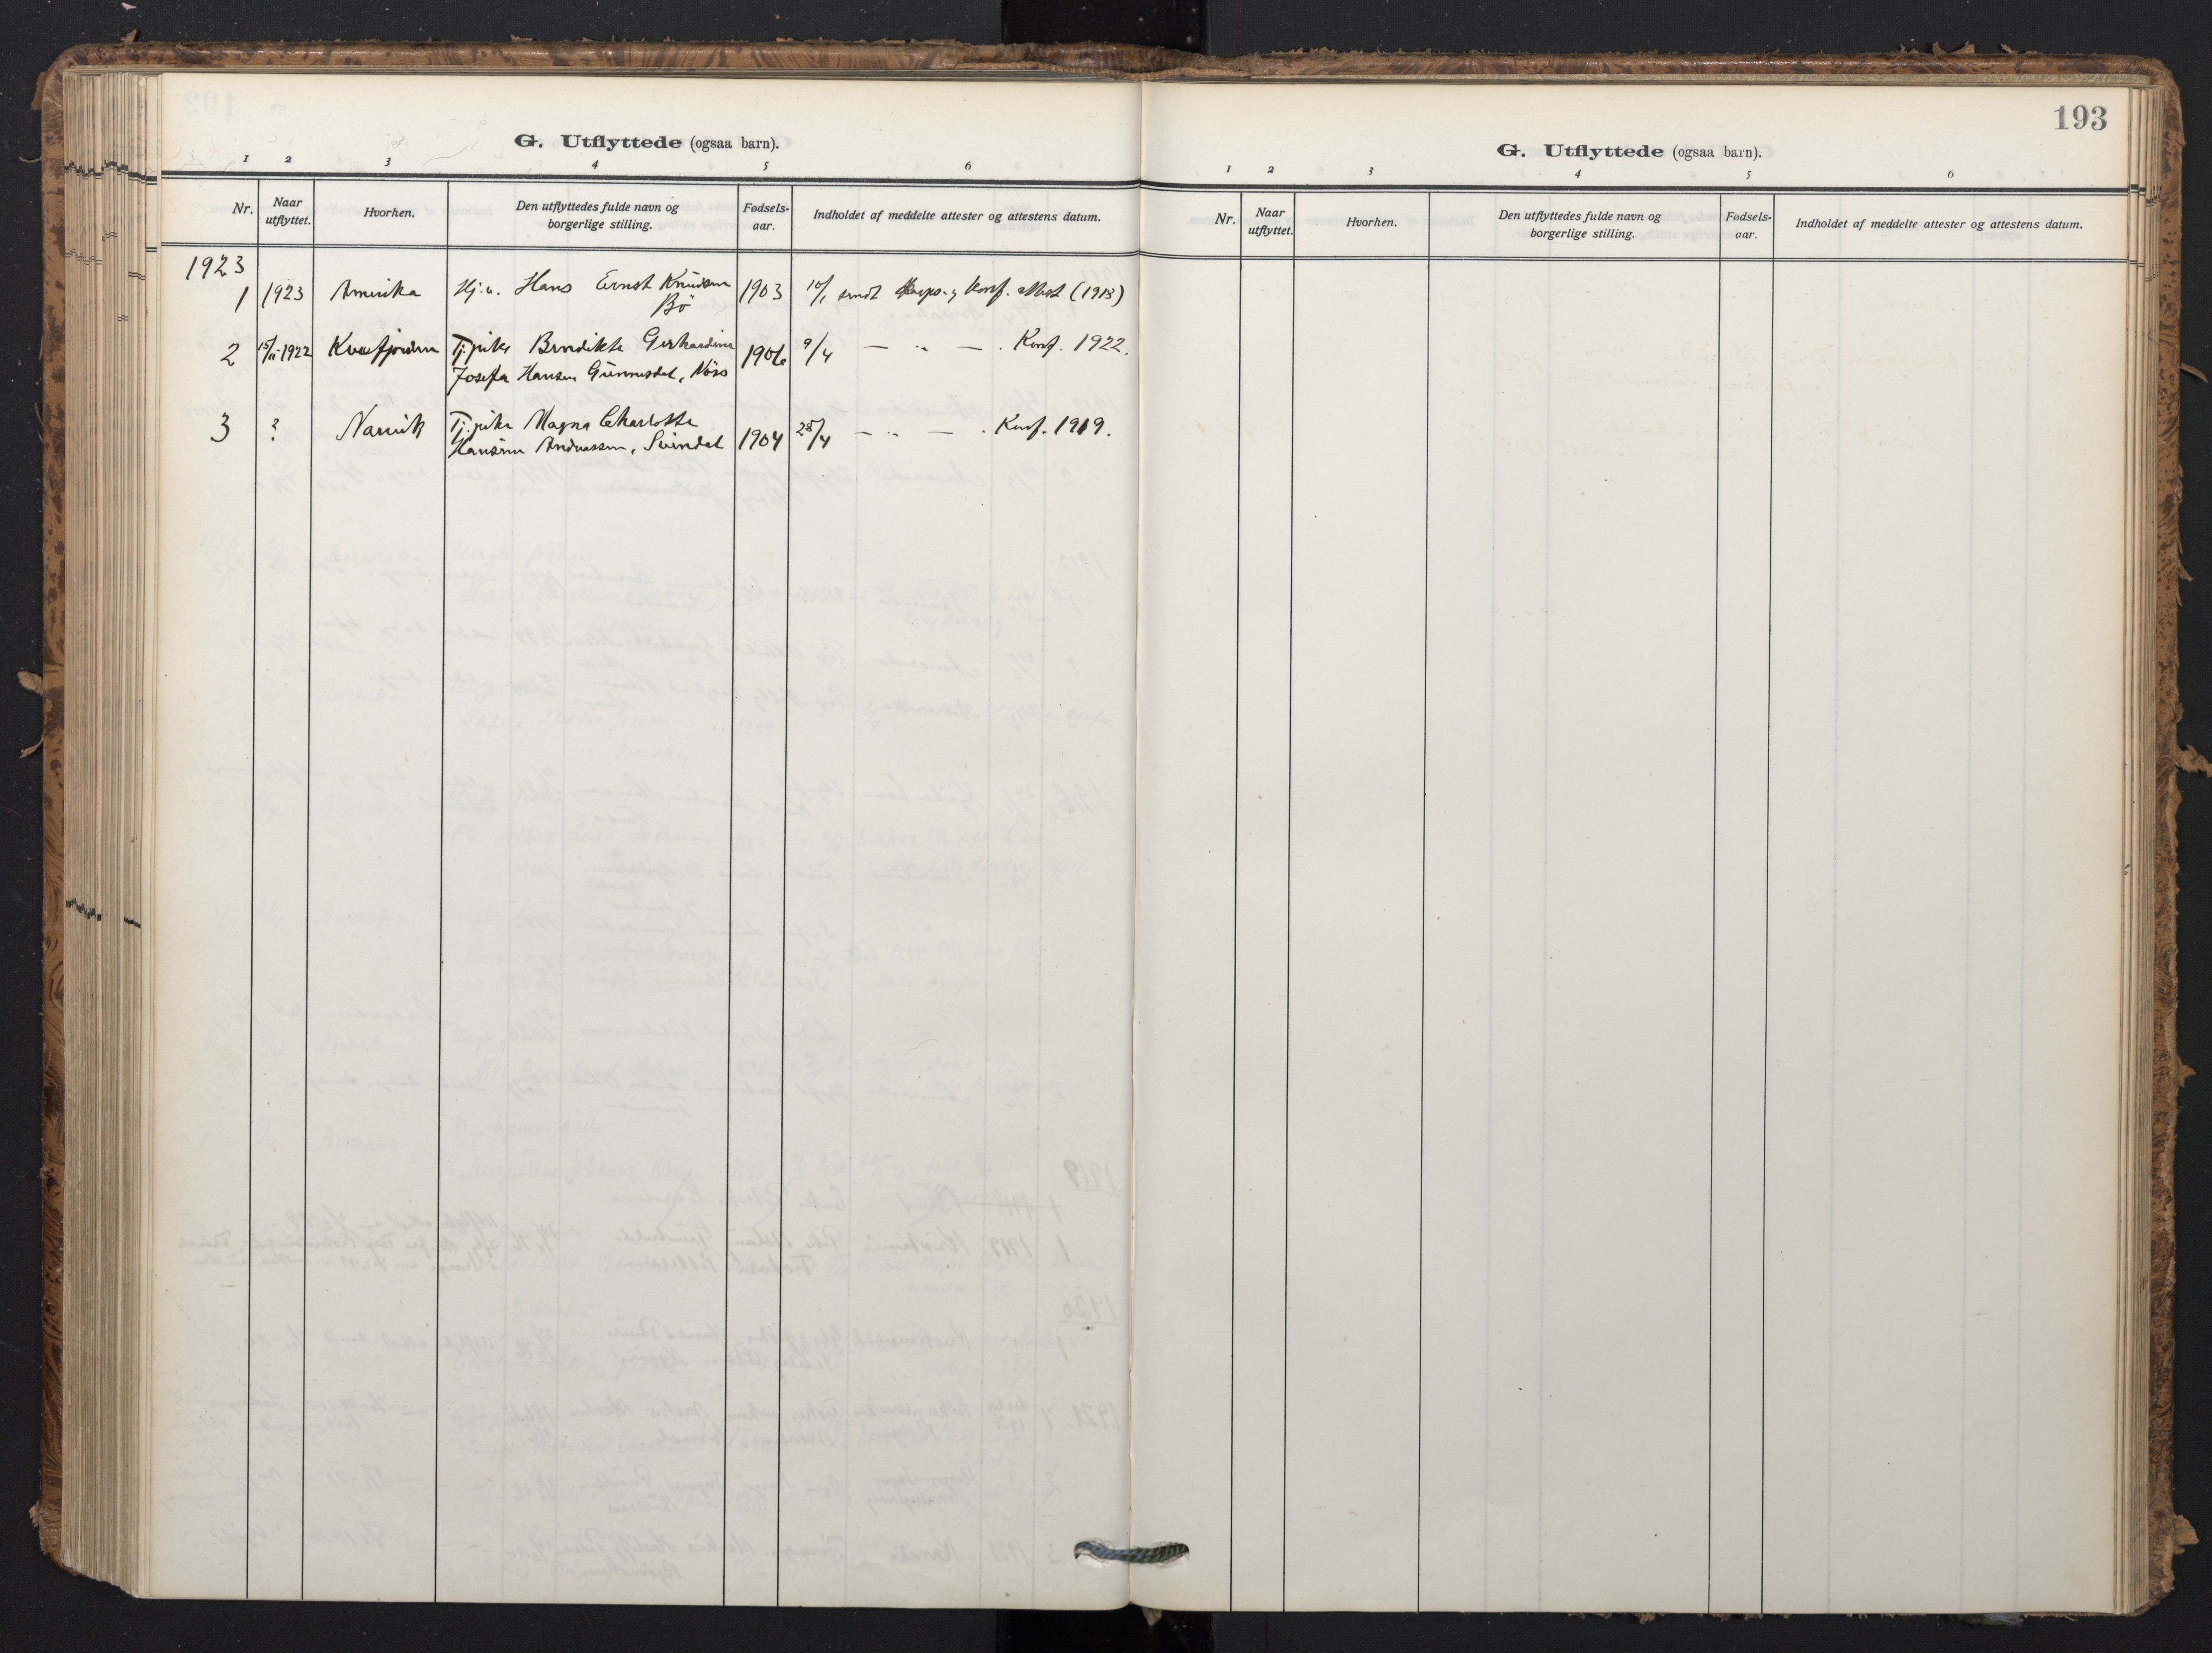 G. Utflyttede (ogsaa barn).
1 2 3 4 5 6
Nr. Naar utflyttet. Hvorhen. Den utflyttedes fulde navn og borgerlige stilling. Fødsels-aar. Indholdet af meddelte attester og attestens datum.
1923
1 1923 Amerika Hans Ernst Knudsen 1903 10/1 sendt konf. attest (1918)
Bø
2 15/11 1922 Kvæfjorden Tj.pike Bendikte Gerhardine 1906 9/4 — „ — . Konf. 1922.
Josefa Hansen
3 ? Narvik Tj.pike Magna Charlotte 1904 28/4 — „ — . Konf. 1919.
Andreassen,
193
G. Utflyttede (ogsaa barn).
1 2 3 4 5 6
Nr. Naar utflyttet. Hvorhen. Den utflyttedes fulde navn og borgerlige stilling. Fødsels-aar. Indholdet af meddelte attester og attestens datum.